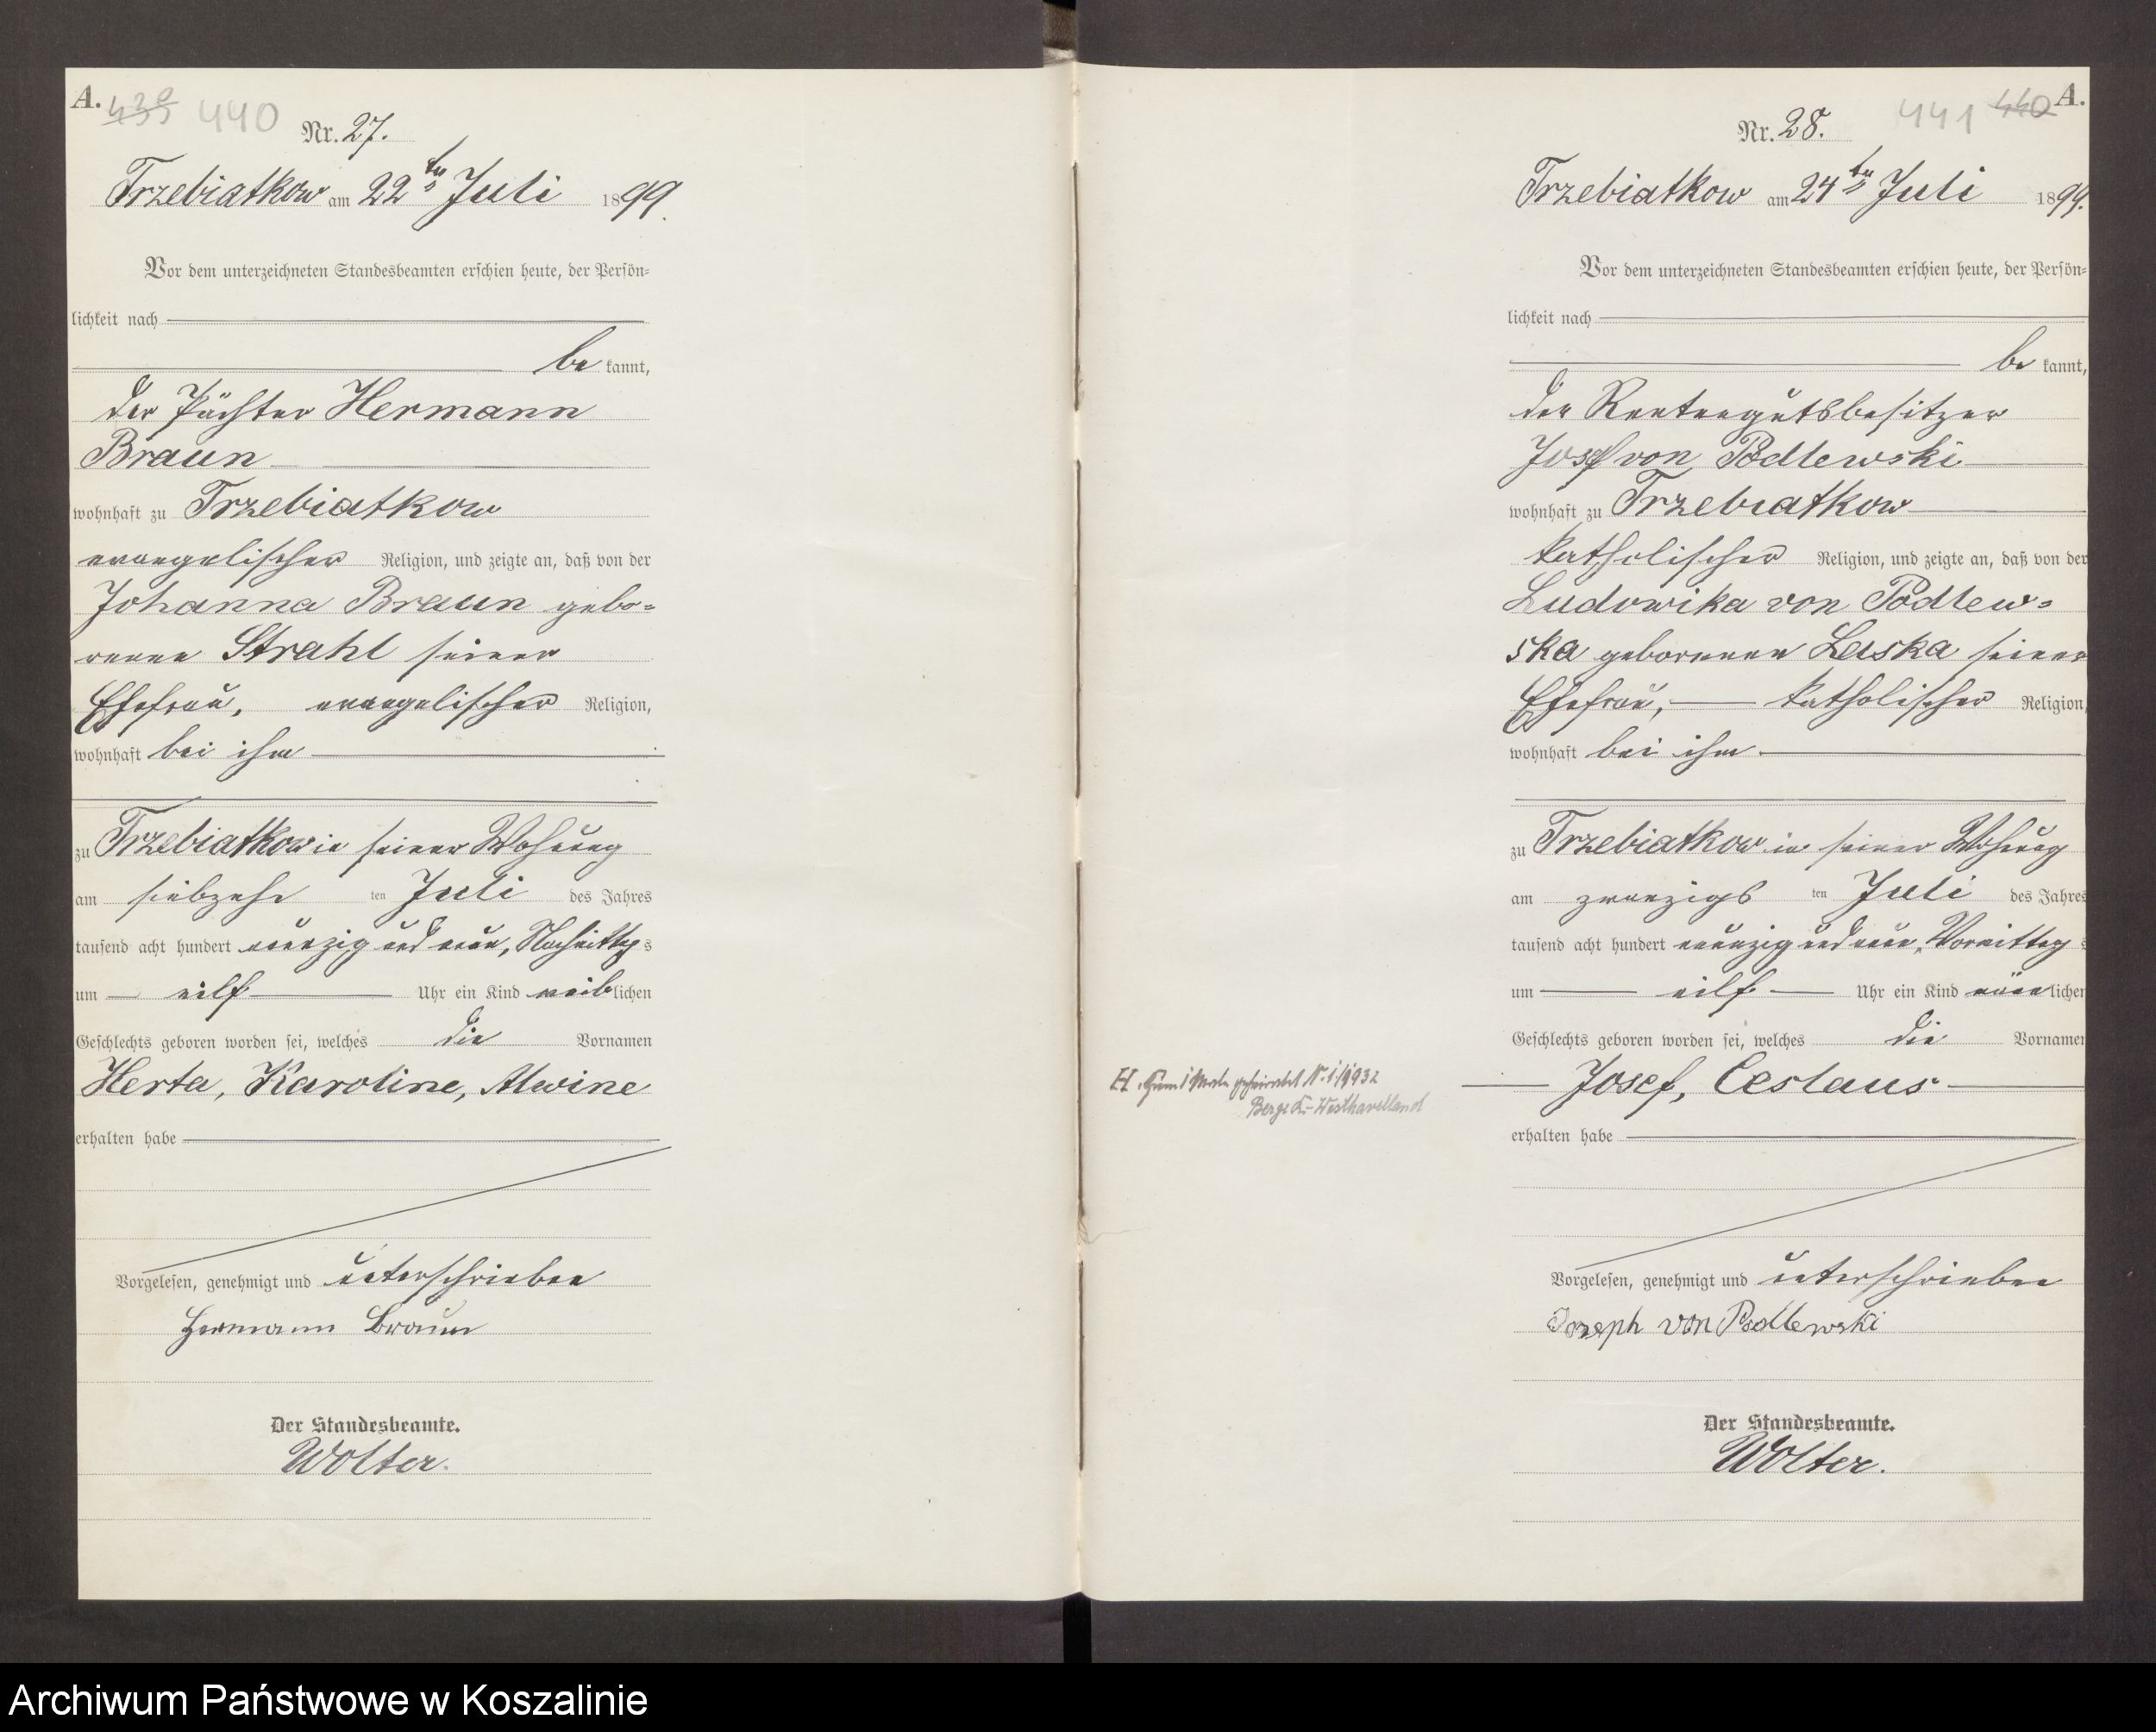 A.
439 440
Nr. 27.
Trzebiatkow am 22ten Juli 1899.
Vor dem unterzeichneten Standesbeamten erschien heute, der Persön=
lichkeit nach
be kannt,
der Pächter Hermann
Braun
wohnhaft zu Trzebiatkow
evangelischer Religion, und zeigte an, daß von der
Johanna Braun gebo=
renen Strahl seiner
Ehefrau, evangelischer Religion,
wohnhaft bei ihm
zu Trzebiatkow in seiner Wohnung
am siebzehn ten Juli des Jahres
tausend acht hundert neunzig und neun, Nachmittags
um eilf Uhr ein Kind weiblichen
Geschlechts geboren worden sei, welches die Vornamen
Herta, Karoline, Alwine
erhalten habe
Vorgelesen, genehmigt und unterschrieben
Hermann Braun
Der Standesbeamte.
Wolter.
A.
441 440
Nr. 28.
Trzebiatkow am 24ten Juli 1899.
Vor dem unterzeichneten Standesbeamten erschien heute, der Persön=
lichkeit nach
be kannt,
der Rentengutsbesitzer
Josef von Podlewski
wohnhaft zu Trzebiatkow
katholischer Religion, und zeigte an, daß von der
Ludowika von Podlew=
ska geborenen Laska seiner
Ehefrau, katholischer Religion,
wohnhaft bei ihm
zu Trzebiatkow in seiner Wohnung
am zwanzigs ten Juli des Jahres
tausend acht hundert neunzig und neun, Vormittag s
um eilf Uhr ein Kind männlichen
Geschlechts geboren worden sei, welches die Vornamen
H. geheiratet Nr. 1/1932
Berge Kr. Westhavelland
Josef, Ceslaus
erhalten habe
Vorgelesen, genehmigt und unterschrieben
Joseph von Podlewski
Der Standesbeamte.
Wolter.
Archiwum Państwowe w Koszalinie